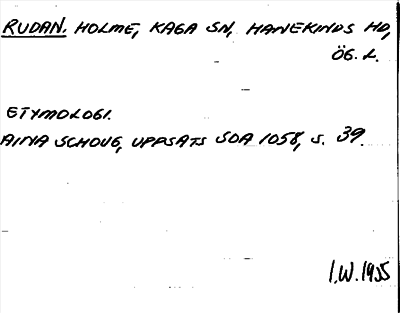 RUDAN. HOLME, KAGA SN, HANEKINDS HD,
ÖG. L.
ETYMOLOGI.
AINA SCHOUG, UPPSATS SOA 1058, S. 39.
I.W. 1935